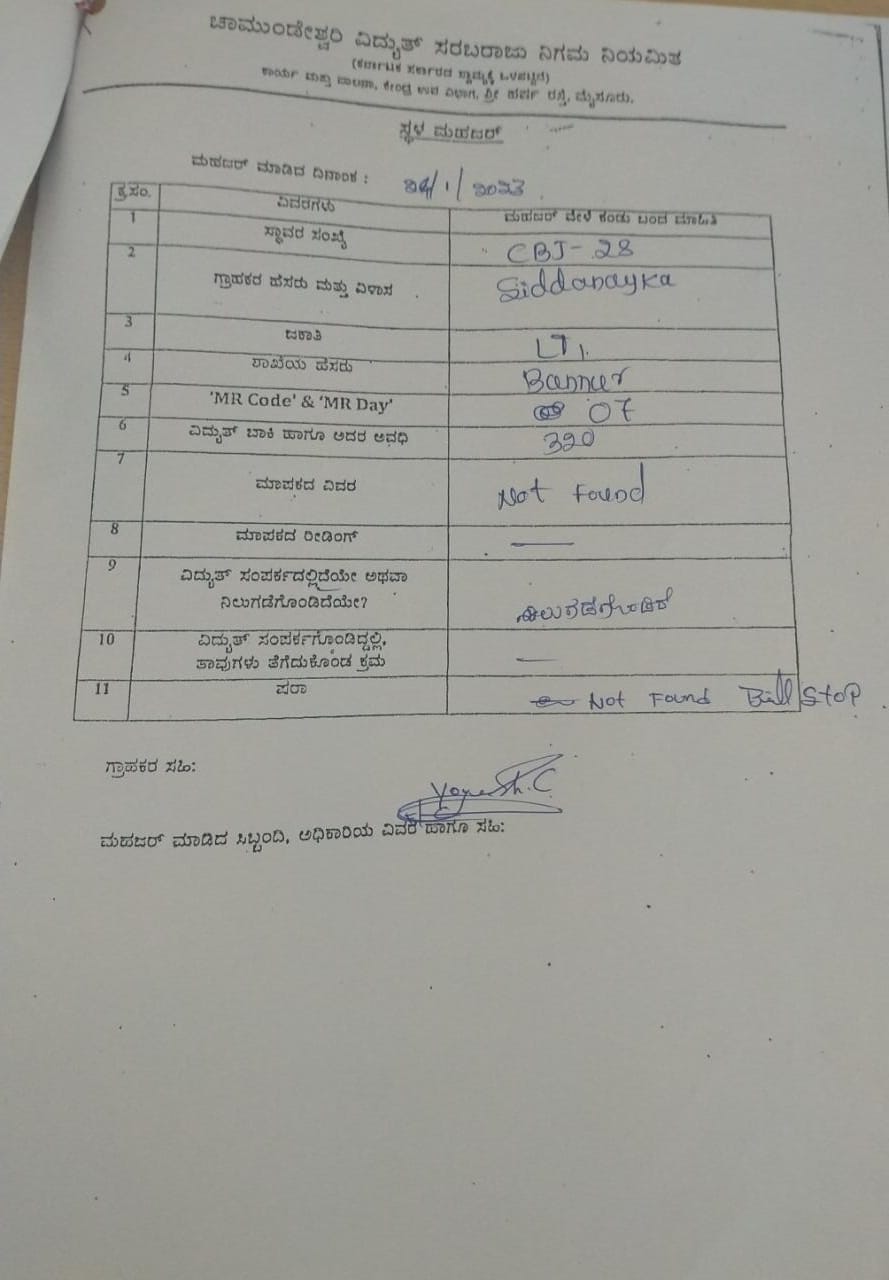 ಚಾಮುಂಡೇಶ್ವರಿ ವಿದ್ಯುತ್ ಸರಬರಾಜು ನಿಗಮ ನಿಯಮಿತ
(ಕರ್ನಾಟಕ ಸರ್ಕಾರದ ಸ್ವಾಮ್ಯಕ್ಕೆ ಒಳಪಟ್ಟಿದೆ)
ಕಾರ್ಯ ಮತ್ತು ಪಾಲನಾ, ಕೇಂದ್ರ ಉಪ ವಿಭಾಗ, ಶ್ರೀ ಹರ್ಷ ರಸ್ತೆ, ಮೈಸೂರು.
ಸ್ಥಳ ಮಹಜರ್
ಮಹಜರ್ ಮಾಡಿದ ದಿನಾಂಕ : 24/1/2023
ಕ್ರ.ಸಂ. ವಿವರಗಳು ಮಹಜರ್ ವೇಳೆ ಕಂಡು ಬಂದ ಮಾಹಿತಿ
1 ಸ್ಥಾವರ ಸಂಖ್ಯೆ CBJ-28
2 ಗ್ರಾಹಕರ ಹೆಸರು ಮತ್ತು ವಿಳಾಸ Siddanayka
3 ಜಕಾತಿ LT1.
4 ಶಾಖೆಯ ಹೆಸರು Bannur
5 'MR Code' & 'MR Day' 07
6 ವಿದ್ಯುತ್ ಬಾಕಿ ಹಾಗೂ ಅದರ ಅವಧಿ 320
7 ಮಾಪಕದ ವಿವರ Not Found
8 ಮಾಪಕದ ರೀಡಿಂಗ್ —
9 ವಿದ್ಯುತ್ ಸಂಪರ್ಕದಲ್ಲಿದೆಯೇ ಅಥವಾ
ನಿಲುಗಡೆಗೊಂಡಿದೆಯೇ? ನಿಲುಗಡೆಗೊಂಡಿದೆ
10 ವಿದ್ಯುತ್ ಸಂಪರ್ಕಗೊಂಡಿದ್ದಲ್ಲಿ,
ತಾವುಗಳು ತೆಗೆದುಕೊಂಡ ಕ್ರಮ —
11 ಷರಾ Not Found Bill Stop
ಗ್ರಾಹಕರ ಸಹಿ:
Yogesh.C
ಮಹಜರ್ ಮಾಡಿದ ಸಿಬ್ಬಂದಿ, ಅಧಿಕಾರಿಯ ವಿವರ ಹಾಗೂ ಸಹಿ: